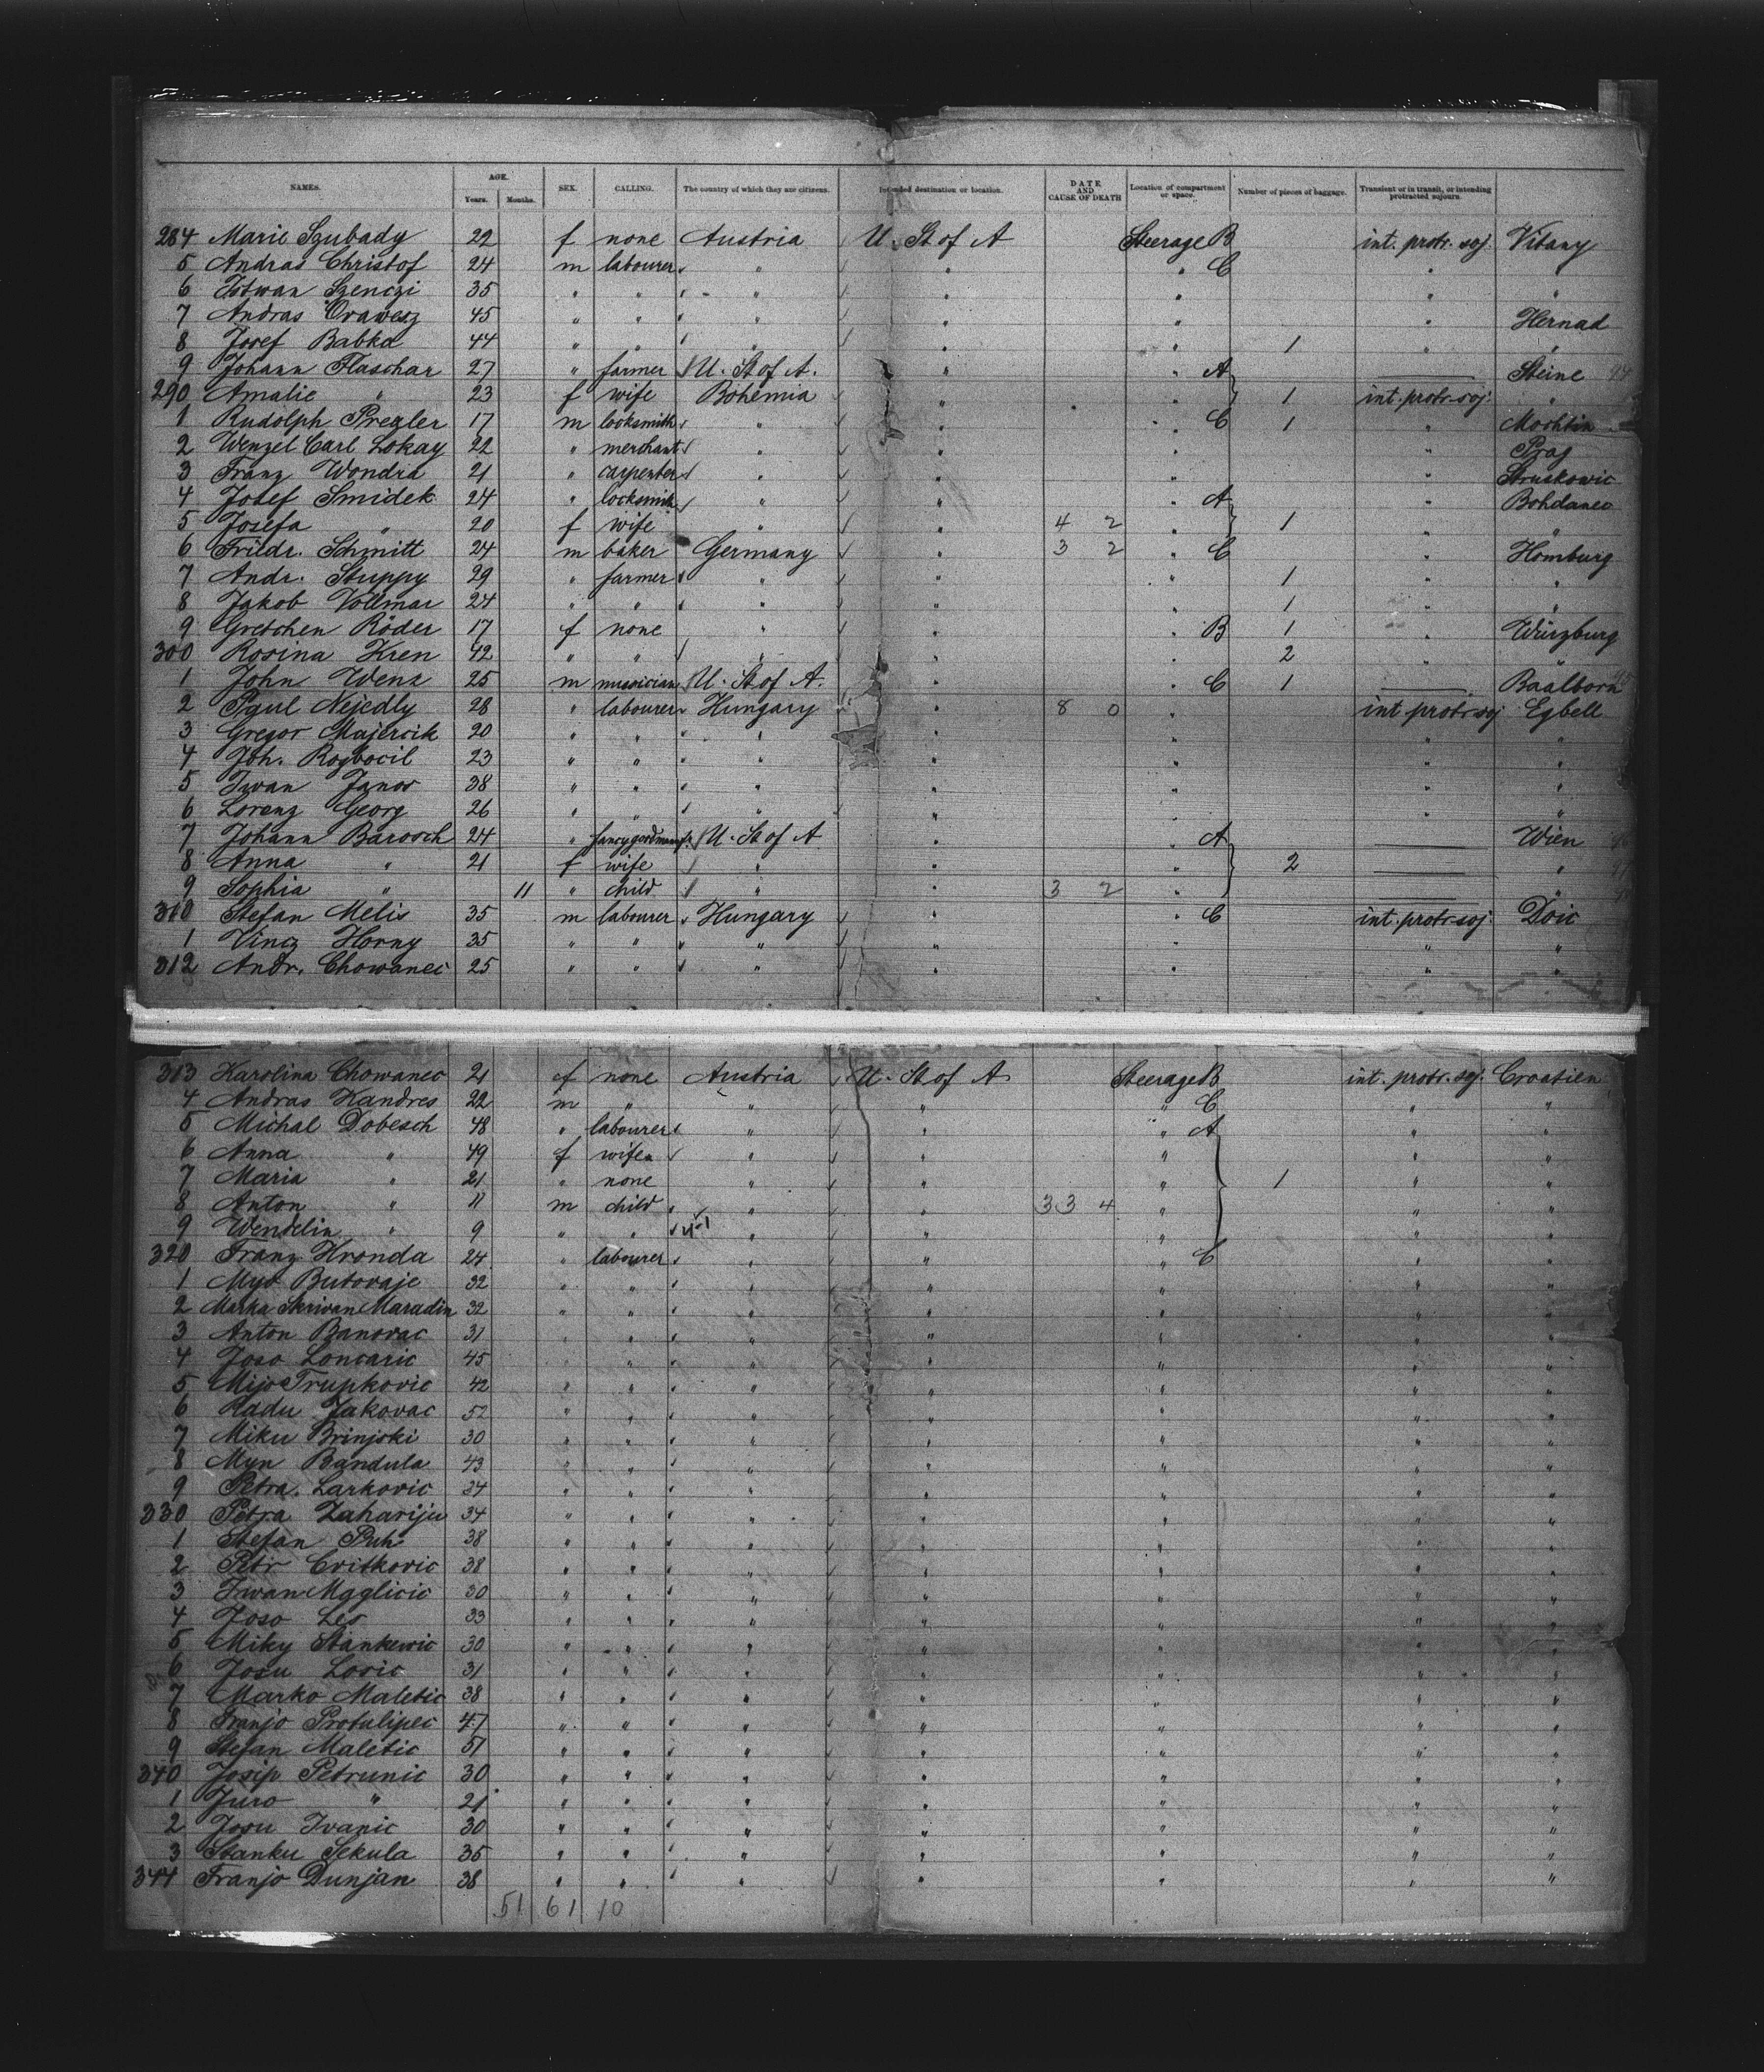 NAMES. AGE. Years. Months. SEX. CALLING. The country of which they are citizens. Intended destination or location. DATE AND CAUSE OF DEATH Location of compartment or space. Number of pieces of baggage. Transient or in transit, or intending protracted sojourn.
284 Marie Szubady 22 f none Austria U. St of A Steerage B int. protr. soj. Vitany
5 Andras Christof 24 m labourer " " " C " "
6 Istwan Szenczi 35 " " " " " " "
7 Andras Orawesz 45 " " " " " " Hernad
8 Josef Babka 44 " " " " " 1 " "
9 Johann Flaschar 27 " farmer U. St of A. " " A Steine
290 Amalie " 23 f wife Bohemia " " 1 int. protr. soj. "
1 Rudolph Pregler 17 m locksmith " " " C 1 " Mochtin
2 Wenzel Carl Lokay 22 " merchant " " " " Prag
3 Franz Wondra 21 " carpenter " " " " Struskowic
4 Josef Smidek 24 " locksmith " " " A " Bohdanec
5 Josefa " 20 f wife " " 4 2 " 1 " "
6 Friedr. Schmitt 24 m baker Germany " 3 2 " C " Homburg
7 Andr. Stuppy 29 " farmer " " " 1 " "
8 Jakob Vollmar 24 " " " " " 1 " "
9 Gretchen Röder 17 f none " " " B 1 " Würzburg
300 Rosina Kren 42 " " " " " 2 " "
1 John Wenz 25 m musician U. St of A. " " C 1 Baalborn
2 Paul Nejedly 28 " labourer Hungary " 8 0 " int protr soj Egbell
3 Gregor Majercik 20 " " " " " " "
4 Joh. Rozbocil 23 " " " " " " "
5 Iwan Janos 38 " " " " " " "
6 Lorenz Georg 26 " " " " " " "
7 Johann Barosch 24 " U. St of A " " A Wien
8 Anna " 21 f wife " " " 2 "
9 Sophia " 11 " child " " 3 2 " "
310 Stefan Melis 35 m labourer Hungary " " C int. protr. soj. Doic
1 Vincz Horny 35 " " " " " " "
312 Andr. Chowanec 25 " " " " " " "
313 Karolina Chowanec 21 f none Austria U. St of A Steerage B int. protr. soj. Croatien
4 Andras Kandres 22 m " " " " C " "
5 Michal Dobesch 48 " labourer " " " A " "
6 Anna " 49 f wife " " " " "
7 Maria " 21 " none " " " 1 " "
8 Anton " 11 m child " " 3 3 4 " " "
9 Wendelin " 9 " " " " " " "
320 Franz Hronda 24 " labourer " " " C " "
1 Myo Butovaje 32 " " " " " " "
2 Marka Skrivan Maradin 32 " " " " " " "
3 Anton Banovac 31 " " " " " " "
4 Joso Loncaric 45 " " " " " " "
5 Mijo Trupkovic 42 " " " " " " "
6 Radu Jakovac 52 " " " " " " "
7 Miku Brinjski 30 " " " " " " "
8 Myn Bandula 43 " " " " " " "
9 Petra Larkovic 24 " " " " " " "
330 Petra Zahariju 34 " " " " " " "
1 Stefan Puh 38 " " " " " " "
2 Petr Cvitkovic 38 " " " " " " "
3 Iwan Maglicic 30 " " " " " " "
4 Joso Les 33 " " " " " " "
5 Miky Stankewic 30 " " " " " " "
6 Josu Loric 31 " " " " " " "
7 Marko Maletic 38 " " " " " " "
8 Franjo Protulipec 47 " " " " " " "
9 Stefan Maletic 51 " " " " " " "
340 Josip Petrunic 30 " " " " " " "
1 Juro " 21 " " " " " " "
2 Josu Ivanic 30 " " " " " " "
3 Stanku Sekula 35 " " " " " " "
344 Franjo Dunjan 38 " " " " " " "
51 61 10